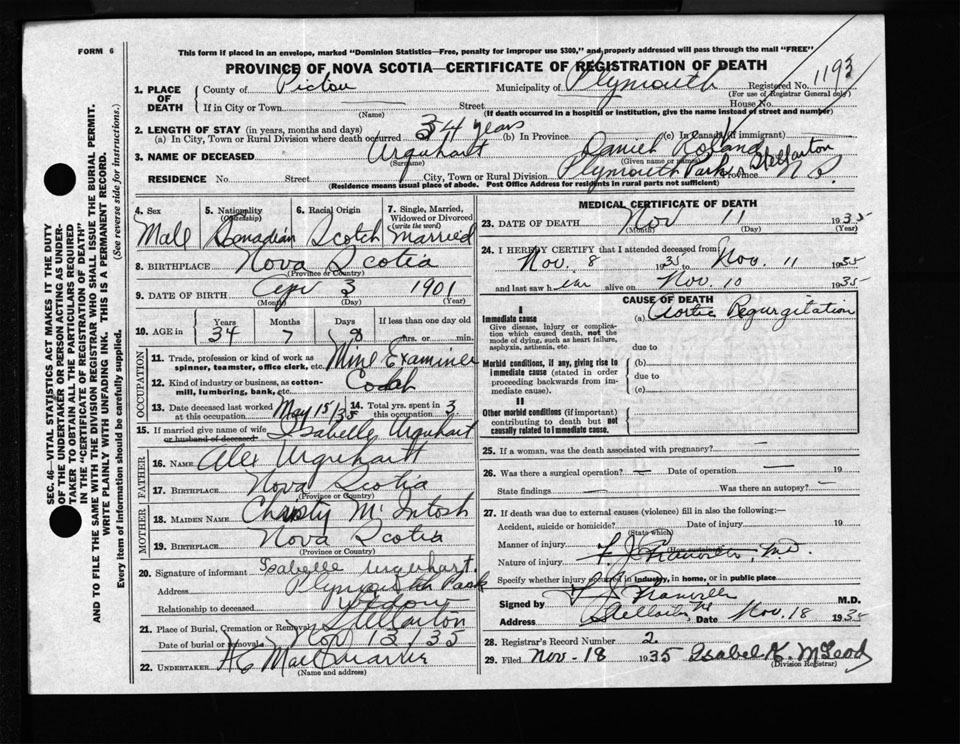 FORM 6
This form if placed in an envelope, marked "Dominion Statistics—Free, penalty for improper use $300," and properly addressed will pass through the mail "FREE"
PROVINCE OF NOVA SCOTIA—CERTIFICATE OF REGISTRATION OF DEATH
1193
1. PLACE OF DEATH
County of Pictou Municipality of Plymouth Registered No.
(For use of Registrar General only)
If in City or Town Street House No.
(Name) (If death occurred in a hospital or institution, give the name instead of street and number)
2. LENGTH OF STAY (in years, months and days)
(a) In City, Town or Rural Division where death occurred 34 years (b) In Province (c) In Canada (if immigrant)
3. NAME OF DECEASED Urquhart Daniel Roland
(Surname) (Given name or names)
RESIDENCE No. Street City, Town or Rural Division Plymouth Park Stellarton Province N S.
(Residence means usual place of abode. Post Office Address for residents in rural parts not sufficient)
4. Sex Male
5. Nationality (Citizenship) Canadian
6. Racial Origin Scotch
7. Single, Married, Widowed or Divorced (write the word) Married
8. BIRTHPLACE Nova Scotia
(Province or Country)
9. DATE OF BIRTH Apr 3 1901
(Month) (Day) (Year)
10. AGE in Years 34 Months 7 Days 8 If less than one day old hrs. or min.
OCCUPATION
11. Trade, profession or kind of work as spinner, teamster, office clerk, etc. Mine Examiner
12. Kind of industry or business, as cotton-mill, lumbering, bank, etc.
13. Date deceased last worked at this occupation May 15/35
14. Total yrs. spent in this occupation 3
15. If married give name of wife or husband of deceased Isabelle Urquhart
FATHER
16. NAME Alex Urquhart
17. BIRTHPLACE Nova Scotia
(Province or Country)
MOTHER
18. MAIDEN NAME Christy McIntosh
19. BIRTHPLACE Nova Scotia
(Province or Country)
20. Signature of informant Isabelle Urquhart.
Address Plymouth Park
Relationship to deceased Widow
21. Place of Burial, Cremation or Removal Stellarton
Date of burial or removal Nov 13, 35
22. UNDERTAKER
(Name and address)
MEDICAL CERTIFICATE OF DEATH
23. DATE OF DEATH Nov 11 1935
(Month) (Day) (Year)
24. I HEREBY CERTIFY that I attended deceased from
Nov. 8 1935 to Nov. 11 1935
and last saw him alive on Nov. 10 1935
CAUSE OF DEATH
I
Immediate cause (a) Aortic Regurgitation
Give disease, injury or complication which caused death, not the mode of dying, such as heart failure, asphyxia, asthenia, etc.
due to
Morbid conditions, if any, giving rise to immediate cause (stated in order proceeding backwards from immediate cause).
(b)
due to
(c)
II
Other morbid conditions (if important) contributing to death but not causally related to immediate cause.
25. If a woman, was the death associated with pregnancy? —
26. Was there a surgical operation? — Date of operation — 19
State findings — Was there an autopsy? —
27. If death was due to external causes (violence) fill in also the following:—
Accident, suicide or homicide? Date of injury 19
(State which)
Manner of injury
(How sustained)
Nature of injury
Specify whether injury occurred in industry, in home, or in public place
Signed by M.D.
Address Date Nov. 18 1935
28. Registrar's Record Number 2
29. Filed Nov - 18 1935 Isabel K. McLeod
(Division Registrar)
SEC. 46—VITAL STATISTICS ACT MAKES IT THE DUTY OF THE UNDERTAKER OR PERSON ACTING AS UNDERTAKER TO OBTAIN ALL THE PARTICULARS REQUIRED IN THE "CERTIFICATE OF REGISTRATION OF DEATH" AND TO FILE THE SAME WITH THE DIVISION REGISTRAR WHO SHALL ISSUE THE BURIAL PERMIT.
WRITE PLAINLY WITH UNFADING INK. THIS IS A PERMANENT RECORD.
Every item of information should be carefully supplied. (See reverse side for instructions.)